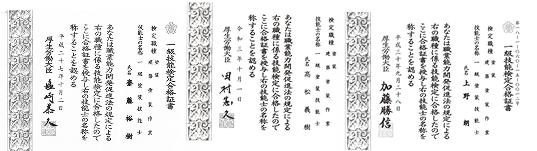 一級技能検定合格証書
検定職種 塗装
技能士の名称 一級塗装技能士
氏名 齋藤裕樹
あなたは職業能力開発促進法の規定による
右の職種に係る技能検定に合格したので
ここに合格証書を授与し右の技能士の名称を
称することを認める
平成二十七年十月二日
厚生労働大臣 塩崎恭久
検定職種 塗装
技能士の名称 一級塗装技能士
氏名 高松義樹
あなたは職業能力開発促進法の規定による
右の職種に係る技能検定に合格したので
ここに合格証書を授与し右の技能士の名称を
称することを認める
令和三年十月一日
厚生労働大臣 田村憲久
一級技能検定合格証書
検定職種 塗装
技能士の名称 一級塗装技能士
氏名 上野朗
あなたは職業能力開発促進法の規定による
右の職種に係る技能検定に合格したので
ここに合格証書を授与し右の技能士の名称を
称することを認める
平成三十年九月二十八日
厚生労働大臣 加藤勝信